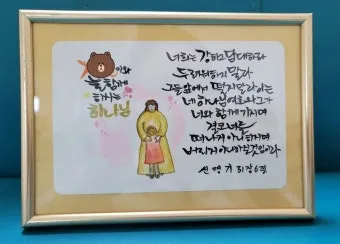 이와
늘 함께
하시는
하나님
너희는 강하고 담대하라
두려워하지 말라
그들 앞에서 떨지 말라 이는
네 하나님 여호와 그가
너와 함께 가시며
결코 너를
떠나지 아니하시며
버리지 아니하실 것임이라
신명기 31장 6절